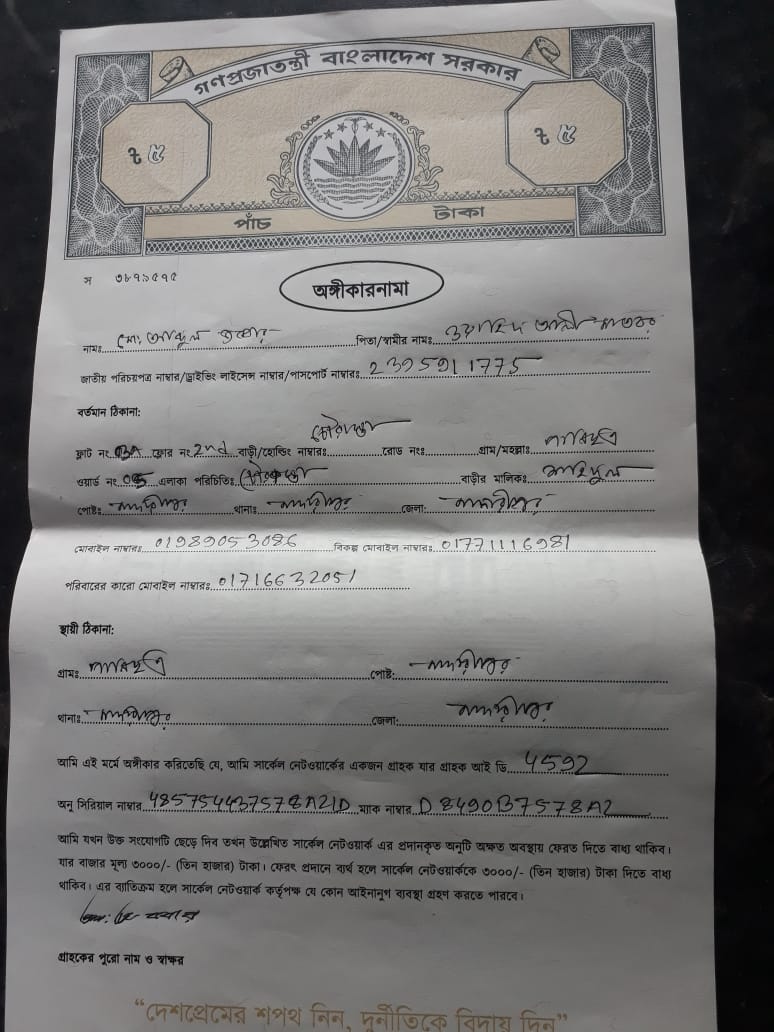 গণপ্রজাতন্ত্রী বাংলাদেশ সরকার
৳ ৫ ৳ ৫
পাঁচ টাকা
স ৩৮৭১৫৭৫
অঙ্গীকারনামা
নামঃ মো: পিতা/স্বামীর নামঃ
জাতীয় পরিচয়পত্র নাম্বার/ড্রাইভিং লাইসেন্স নাম্বার/পাসপোর্ট নাম্বারঃ 2395911775
বর্তমান ঠিকানা:
ফ্লাট নং ফ্লোর নং 2nd বাড়ী/হোল্ডিং নাম্বারঃ রোড নংঃ গ্রাম/মহল্লাঃ
ওয়ার্ড নং 05 এলাকা পরিচিতিঃ বাড়ীর মালিকঃ
পোষ্টঃ মাদারীপুর থানাঃ মাদারীপুর জেলা: মাদারীপুর
মোবাইল নাম্বারঃ 01989053086 বিকল্প মোবাইল নাম্বারঃ 01771116981
পরিবারের কারো মোবাইল নাম্বারঃ 01716632051
স্থায়ী ঠিকানা:
গ্রামঃ পোষ্ট: মাদারীপুর
থানাঃ মাদারীপুর জেলা: মাদারীপুর
আমি এই মর্মে অঙ্গীকার করিতেছি যে, আমি সার্কেল নেটওয়ার্কের একজন গ্রাহক যার গ্রাহক আই ডি 4592
অনু সিরিয়াল নাম্বার 485754437578A21D ম্যাক নাম্বার D8490B7578A2
আমি যখন উক্ত সংযোগটি ছেড়ে দিব তখন উল্লেখিত সার্কেল নেটওয়ার্ক এর প্রদানকৃত অনুটি অক্ষত অবস্থায় ফেরত দিতে বাধ্য থাকিব।
যার বাজার মূল্য ৩০০০/- (তিন হাজার) টাকা। ফেরৎ প্রদানে ব্যর্থ হলে সার্কেল নেটওয়ার্ককে ৩০০০/- (তিন হাজার) টাকা দিতে বাধ্য
থাকিব। এর ব্যতিক্রম হলে সার্কেল নেটওয়ার্ক কর্তৃপক্ষ যে কোন আইনানুগ ব্যবস্থা গ্রহণ করতে পারবে।
গ্রাহকের পুরো নাম ও স্বাক্ষর
“দেশপ্রেমের শপথ নিন, দুর্নীতিকে বিদায় দিন”